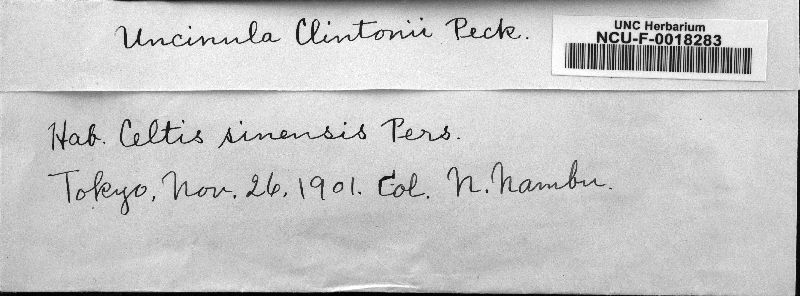 Uncinula Clintonii Peck.
UNC Herbarium
NCU-F-0018283
Hab. Celtis sinensis Pers.
Tokyo, Nov. 26, 1901. Col. N. Nambu.